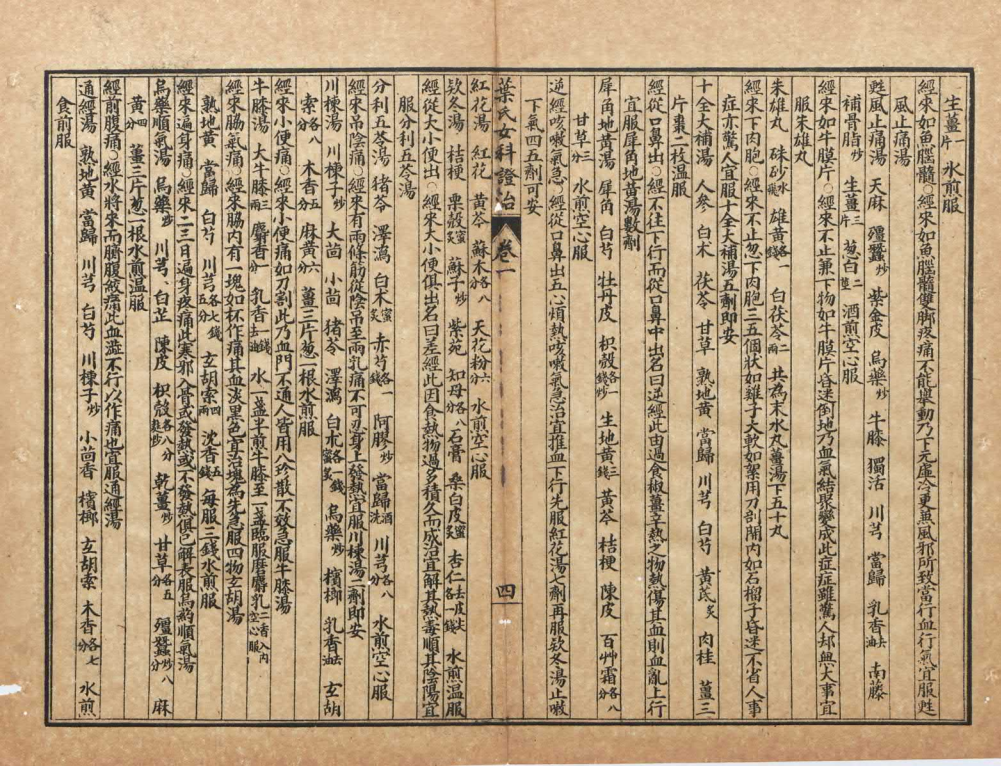 生薑一片 水煎服
經來如魚腦髓○經來如魚腦髓雙脚疼痛不能舉動乃下元虛冷更兼風邪所致當行血行氣宜服甦
風止痛湯
甦風止痛湯 天麻 殭蠶炒 紫金皮 烏藥炒 牛膝 獨活 川芎 當歸 乳香去油 南藤
補骨脂炒 生薑三片 葱白二莖 酒煎空心服
經來如牛膜片○經來不止兼下物如牛膜片昏迷倒地乃血氣結聚變成此症症雖驚人却無大事宜
服朱雄丸
朱雄丸 硃砂水飛 雄黃各一錢 白茯苓二兩 共為末水丸薑湯下五十丸
經來下肉胞○經來不止忽下肉胞三五個狀如雞子大軟如絮用刀剖開內如石榴子昏迷不省人事
症亦驚人宜服十全大補湯五劑即安
十全大補湯 人參 白朮 茯苓 甘草 熟地黃 當歸 川芎 白芍 黃芪炙 肉桂 薑三
片棗二枚溫服
經從口鼻出○經不往下行而從口鼻中出名曰逆經此由過食椒薑辛熱之物熱傷其血則血亂上行
宜服犀角地黃湯數劑
犀角地黃湯 犀角 白芍 牡丹皮 枳殼各一錢炒 生地黃三錢 黃芩 桔梗 陳皮 百艸霜各八分
甘草三分 水煎空心服
逆經咳嗽氣急○經從口鼻出五心煩熱咳嗽氣急治宜推血下行先服紅花湯七劑再服欵冬湯止嗽
下氣四五劑可安
葉氏女科證治 卷一 四
紅花湯 紅花 黃芩 蘇木各八分 天花粉六分 水煎空心服
欵冬湯 桔梗 粟殼蜜炙 蘇子炒 紫苑 知母各八分 石膏 桑白皮蜜炙 杏仁去皮尖各一錢 水煎溫服
經從大小便出○經來大小便俱出名曰差經此因食熱物過多積久而成治宜解其熱毒順其陰陽宜
服分利五苓湯
分利五苓湯 猪苓 澤瀉 白朮蜜炙 赤芍各一錢 阿膠炒 當歸酒洗 川芎各八分 水煎空心服
經來吊陰痛○經來有兩條筋從陰吊至兩乳痛不可忍身上發熱宜服川楝湯二劑即安
川楝湯 川楝子炒 大茴 小茴 猪苓 澤瀉 白朮蜜炙各一錢 烏藥炒 檳榔 乳香去油 玄胡
索各八分 木香五分 麻黃六分 薑三片葱一根水煎服
經來小便痛○經來小便痛如刀割此乃血門不通人皆用八珍散不效急服牛膝湯
牛膝湯 大牛膝三兩 麝香一分 乳香一錢去油 水一盞半煎牛膝至一盞臨服磨麝乳二香入內空心服
經來脇氣痛○經來脇內有一塊如杯作痛其血淡黑色宜治塊為先急服四物玄胡湯
熟地黃 當歸 白芍 川芎各七錢五分 玄胡索四兩 沈香五錢 每服三錢水煎服
經來遍身痛○經來二三日遍身疼痛此寒邪入骨或發熱或不發熱俱宜解表服烏藥順氣湯
烏藥順氣湯 烏藥炒 川芎 白芷 陳皮 枳殼各八分麩炒 乾薑炒 甘草各五分 殭蠶炒八分 麻
黃四分 薑三片葱一根水煎溫服
經前腹痛○經水將來而臍腹絞痛此血澁不行以作痛也宜服通經湯
通經湯 熟地黃 當歸 川芎 白芍 川楝子炒 小茴香 檳榔 玄胡索 木香各七分 水煎
食前服